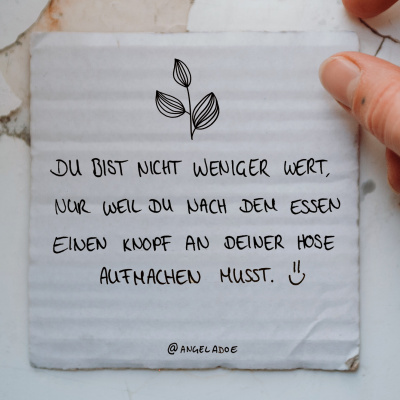 DU BIST NICHT WENIGER WERT,
NUR WEIL DU NACH DEM ESSEN
EINEN KNOPF AN DEINER HOSE
AUFMACHEN MUSST. :)
@ANGELADOE